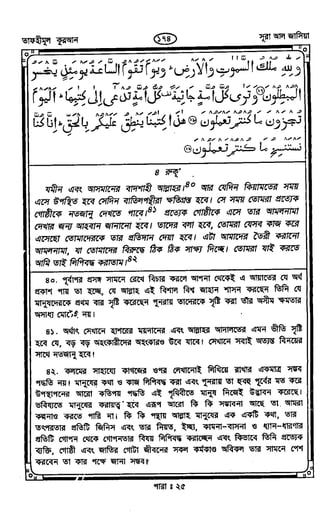 তাফহীমুল কুরআন
১৭৪
সূরা আল জাসিয়া
وَلِلَّهِ مُلْكُ السَّمٰوٰتِ وَالْاَرْضِ ۚ وَيَوْمَ تَقُوْمُ السَّاعَةُ يَوْمَئِذٍ يَّخْسَرُ
الْمُبْطِلُوْنَ ۝ وَتَرٰى كُلَّ اُمَّةٍ جَاثِيَةً ۚ كُلُّ اُمَّةٍ تُدْعٰٓى اِلٰى كِتٰبِهَا ۚ اَلْيَوْمَ
تُجْزَوْنَ مَا كُنْتُمْ تَعْمَلُوْنَ ۝ هٰذَا كِتٰبُنَا يَنْطِقُ عَلَيْكُمْ بِالْحَقِّ ۚ اِنَّا كُنَّا
نَسْتَنْسِخُ مَا كُنْتُمْ تَعْمَلُوْنَ ۝
৪ রুকূ'
যমীন এবং আসমানের বাদশাহী আল্লাহর।৪০ আর যেদিন কিয়ামতের সময়
এসে উপস্থিত হবে সেদিন বাতিলপন্থীরা ক্ষতিগ্রস্ত হবে। সে সময় তোমরা প্রত্যেক
গোষ্ঠীকে নতজানু দেখতে পাবে।৪১ প্রত্যেক গোষ্ঠীকে এসে তার আমলনামা
দেখার জন্য আহবান জানানো হবে। তাদের বলা হবে, তোমরা যেসব কাজ করে
এসেছো তোমাদেরকে তার প্রতিদান দেয়া হবে। এটা আমাদের তৈরী করানো
আমলনামা, যা তোমাদের বিরুদ্ধে ঠিক ঠিক সাক্ষ্য দিচ্ছে। তোমরা যাই করতে
আমি তাই লিপিবদ্ধ করাতাম।৪২
৪০. পূর্বাপর প্রসঙ্গ সামনে রেখে বিচার করলে আপনা থেকেই এ আয়াতের যে অর্থ
প্রকাশ পায় তা হচ্ছে, যে আল্লাহ এই বিশাল বিশ্ব জাহান শাসন করছেন তিনি যে
মানুষদেরকে প্রথম বার সৃষ্টি করেছেন পুনরায় তাদেরকে সৃষ্টি করা তাঁর অসীম ক্ষমতার
অসাধ্য মোটেই নয়।
৪১. অর্থাৎ সেখানে হাশরের ময়দানের এবং আল্লাহর আদালতের এমন ভীতি সৃষ্টি
হবে যে, বড় বড় অহংকারীদের অহংকারও উবে যাবে। সেখানে সবাই অত্যন্ত বিনয়ের
সাথে নতজানু হবে।
৪২. কলমের সাহায্যে কাগজের ওপর লেখানোই লিখিয়ে রাখার একমাত্র সম্ভব
পদ্ধতি নয়। মানুষের কথা ও কাজ লিপিবদ্ধ করা এবং পুনরায় তা হুবহু পূর্বের মত করে
উপস্থাপনের আরো কতিপয় পদ্ধতি এই পৃথিবীতে মানুষ নিজেই উদ্ভাবন করেছে।
ভবিষ্যতে মানুষের করায়ত্ব হবে এরূপ আরো কি কি সম্ভাবনা আছে তা আমরা
কল্পনাও করতে পারি না। কি কি পন্থায় আল্লাহ মানুষের এক একটি কথা, তার
তৎপরতার প্রতিটি জিনিস এবং তার নিয়ত, ইচ্ছা, কামনা-বাসনা ও ধ্যান-ধারণার
প্রতিটি গোপন থেকে গোপনতর বিষয় লিপিবদ্ধ করাচ্ছেন এবং কিভাবে তিনি প্রত্যেক
ব্যক্তি, গোষ্ঠী এবং জাতির গোটা জীবনের সকল কর্মকাণ্ড অবিকল তার সামনে পেশ
করবেন তা কার পক্ষে জানা সম্ভব?
পারা : ২৫